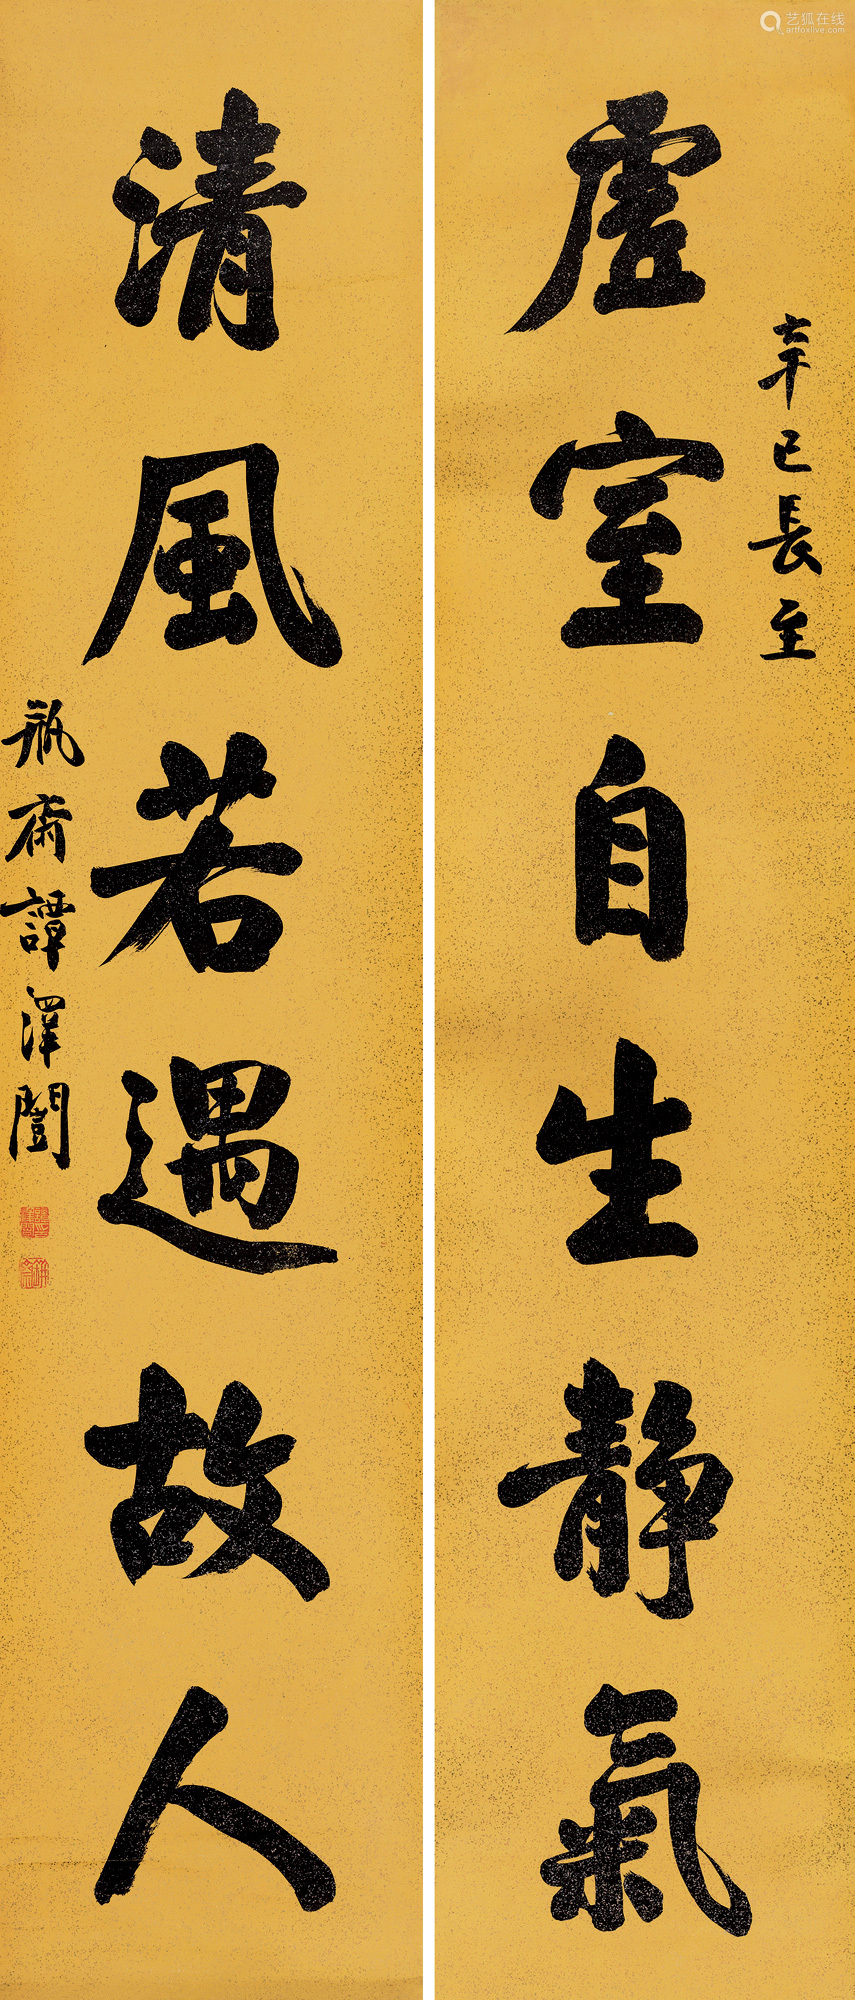 虚室自生静氣
辛巳長至
清風若遇故人
瓶齋譚澤闓
艺狐在线
artfoxlive.com